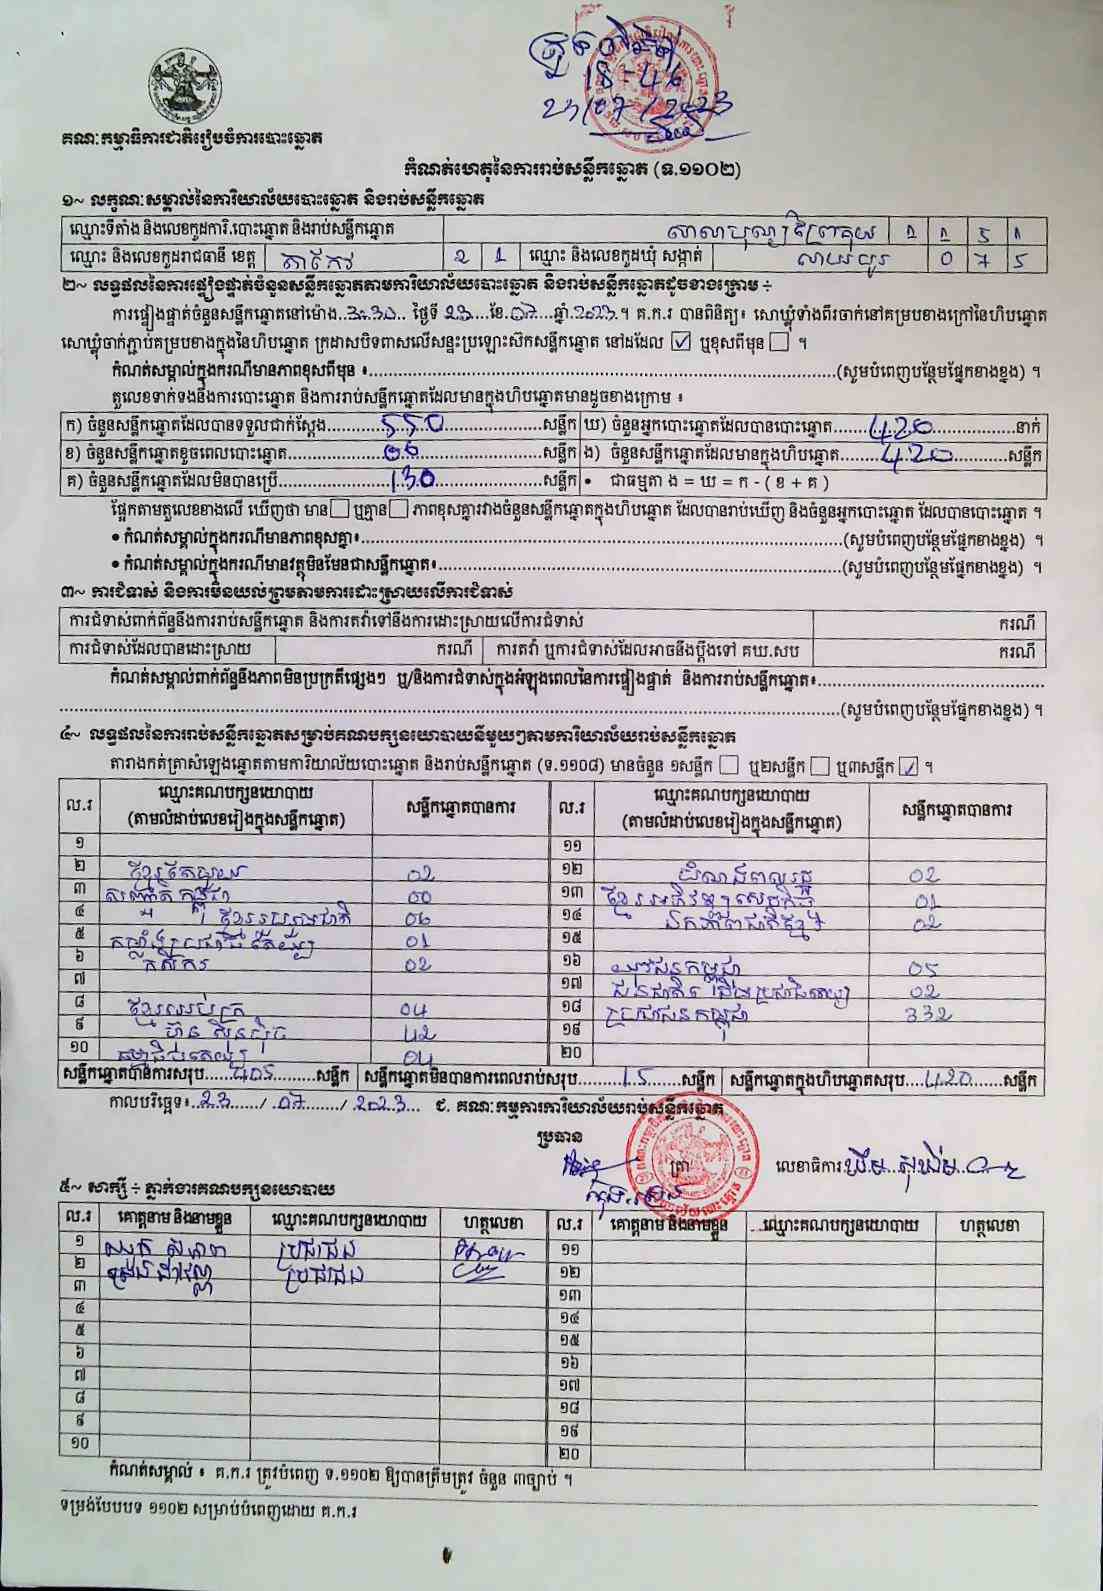 18-46
23/07/2023
គណៈកម្មាធិការជាតិរៀបចំការបោះឆ្នោត
កំណត់ហេតុនៃការរាប់សន្លឹកឆ្នោត (ទ.១១០២)
១~ លក្ខណៈសម្គាល់នៃការិយាល័យបោះឆ្នោត និងរាប់សន្លឹកឆ្នោត
ឈ្មោះទីតាំង និងលេខកូដការិ.បោះឆ្នោត និងរាប់សន្លឹកឆ្នោត
ឈ្មោះ និងលេខកូដរាជធានី ខេត្ត តាកែវ 2 1 ឈ្មោះ និងលេខកូដឃុំ សង្កាត់ 0 7 5
២~ លទ្ធផលនៃការផ្ទៀងផ្ទាត់ចំនួនសន្លឹកឆ្នោតតាមការិយាល័យបោះឆ្នោត និងរាប់សន្លឹកឆ្នោតដូចខាងក្រោម ÷
ការផ្ទៀងផ្ទាត់ចំនួនសន្លឹកឆ្នោតនៅម៉ោង..3:30.. ថ្ងៃទី 23 ខែ 07 ឆ្នាំ 2023។ គ.ក.រ បានពិនិត្យ៖ សោឃ្លុំទាំងពីរចាក់នៅគម្របខាងក្រៅនៃហិបឆ្នោត
សោឃ្លុំចាក់ភ្ជាប់គម្របខាងក្នុងនៃហិបឆ្នោត ក្រដាសបិទពាសលើសន្ទះប្រឡោះស៊កសន្លឹកឆ្នោត នៅដដែល ☑ ឬខុសពីមុន ☐ ។
កំណត់សម្គាល់ក្នុងករណីមានភាពខុសពីមុន ៖ (សូមបំពេញបន្ថែមផ្នែកខាងខ្នង) ។
តួលេខទាក់ទងនឹងការបោះឆ្នោត និងការរាប់សន្លឹកឆ្នោតដែលមានក្នុងហិបឆ្នោតមានដូចខាងក្រោម ៖
ក) ចំនួនសន្លឹកឆ្នោតដែលបានទទួលជាក់ស្តែង 550 សន្លឹក ឃ) ចំនួនអ្នកបោះឆ្នោតដែលបានបោះឆ្នោត 420 នាក់
ខ) ចំនួនសន្លឹកឆ្នោតខូចពេលបោះឆ្នោត 00 សន្លឹក ង) ចំនួនសន្លឹកឆ្នោតដែលមានក្នុងហិបឆ្នោត 420 សន្លឹក
គ) ចំនួនសន្លឹកឆ្នោតដែលមិនបានប្រើ 130 សន្លឹក • ជាធម្មតា ង = ឃ = ក - ( ខ + គ )
ផ្អែកតាមតួលេខខាងលើ ឃើញថា មាន ☐ ឬគ្មាន ☐ ភាពខុសគ្នារវាងចំនួនសន្លឹកឆ្នោតក្នុងហិបឆ្នោត ដែលបានរាប់ឃើញ និងចំនួនអ្នកបោះឆ្នោត ដែលបានបោះឆ្នោត ។
• កំណត់សម្គាល់ក្នុងករណីមានភាពខុសគ្នា៖ (សូមបំពេញបន្ថែមផ្នែកខាងខ្នង) ។
• កំណត់សម្គាល់ក្នុងករណីមានវត្ថុមិនមែនជាសន្លឹកឆ្នោត៖ (សូមបំពេញបន្ថែមផ្នែកខាងខ្នង) ។
៣~ ការជំទាស់ និងការមិនយល់ព្រមតាមការដោះស្រាយលើការជំទាស់
ការជំទាស់ពាក់ព័ន្ធនឹងការរាប់សន្លឹកឆ្នោត និងការតវ៉ាទៅនឹងការដោះស្រាយលើការជំទាស់ ករណី
ការជំទាស់ដែលបានដោះស្រាយ ករណី ការតវ៉ា ឬការជំទាស់ដែលអាចនឹងប្តឹងទៅ គឃ.សប ករណី
កំណត់សម្គាល់ពាក់ព័ន្ធនឹងភាពមិនប្រក្រតីផ្សេងៗ ឬ/និងការជំទាស់ក្នុងអំឡុងពេលនៃការផ្ទៀងផ្ទាត់ និងការរាប់សន្លឹកឆ្នោត៖
(សូមបំពេញបន្ថែមផ្នែកខាងខ្នង) ។
៤~ លទ្ធផលនៃការរាប់សន្លឹកឆ្នោតសម្រាប់គណបក្សនយោបាយនីមួយៗតាមការិយាល័យរាប់សន្លឹកឆ្នោត
តារាងកត់ត្រាសំឡេងឆ្នោតតាមការិយាល័យបោះឆ្នោត និងរាប់សន្លឹកឆ្នោត (ទ.១១០៨) មានចំនួន ១សន្លឹក ☐ ឬ២សន្លឹក ☐ ឬ៣សន្លឹក ☑ ។
ល.រ ឈ្មោះគណបក្សនយោបាយ សន្លឹកឆ្នោតបានការ ល.រ ឈ្មោះគណបក្សនយោបាយ សន្លឹកឆ្នោតបានការ
(តាមលំដាប់លេខរៀងក្នុងសន្លឹកឆ្នោត) (តាមលំដាប់លេខរៀងក្នុងសន្លឹកឆ្នោត)
១ ១១
២ 02 ១២ 02
៣ 00 ១៣ ខ្មែរអភិវឌ្ឍន៍សេដ្ឋកិច្ច 01
៤ ខ្មែររួបរួមជាតិ 06 ១៤ 02
៥ 01 ១៥
៦ កសិករ 02 ១៦ យុវជនកម្ពុជា 05
៧ ១៧ 02
៨ 04 ១៨ ប្រជាជនកម្ពុជា 332
៩ ហ៊្វុនស៊ិនប៉ិច 42 ១៩
១០ 04 ២០
សន្លឹកឆ្នោតបានការសរុប 405 សន្លឹក សន្លឹកឆ្នោតមិនបានការពេលរាប់សរុប 15 សន្លឹក សន្លឹកឆ្នោតក្នុងហិបឆ្នោតសរុប 420 សន្លឹក
កាលបរិច្ឆេទ៖ 23 / 07 / 2023 ជ. គណៈកម្មការការិយាល័យរាប់សន្លឹកឆ្នោត
ប្រធាន
ត្រា លេខាធិការ
៥~ សាក្សី ÷ ភ្នាក់ងារគណបក្សនយោបាយ
ល.រ គោត្តនាម និងនាមខ្លួន ឈ្មោះគណបក្សនយោបាយ ហត្ថលេខា ល.រ គោត្តនាម និងនាមខ្លួន ឈ្មោះគណបក្សនយោបាយ ហត្ថលេខា
១ ប្រជាជន ១១
២ ប្រជាជន ១២
៣ ១៣
៤ ១៤
៥ ១៥
៦ ១៦
៧ ១៧
៨ ១៨
៩ ១៩
១០ ២០
កំណត់សម្គាល់ ៖ គ.ក.រ ត្រូវបំពេញ ទ.១១០២ ឱ្យបានត្រឹមត្រូវ ចំនួន ៣ច្បាប់ ។
ទម្រង់បែបបទ ១១០២ សម្រាប់បំពេញដោយ គ.ក.រ